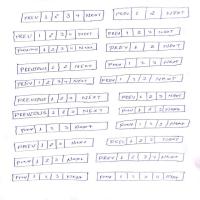 PREV 1 2 3 4 NEXT PREV 1 2 NEXT
PREV 1 2 3 NEXT PREV 1 2 3 NEXT
1 2 3 NEXT PREV 1 2 NEXT
PREVIOUS 1 2 NEXT PREV 1 2 NEXT
PREV 1 2 3 4 NEXT PREV 1 2 3 NEXT
PREVIOUS 1 2 NEXT PREV 1 2 3 NEXT
PREVIOUS 1 2 NEXT PREV 1 2 3 NEXT
PREV 1 2 3 NEXT PREV 1 2 3 NEXT
PREV 1 2 NEXT PREV 1 2 3 NEXT
PREV 1 2 3 NEXT PREV 1 2 3 NEXT
PREV 1 2 3 NEXT PREV 1 2 3 NEXT